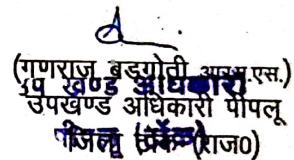 (गणराज बडगोती आर.ए.एस.)
उप खण्ड अधिकारी
उपखण्ड अधिकारी पीपलू
जिला (राज0)